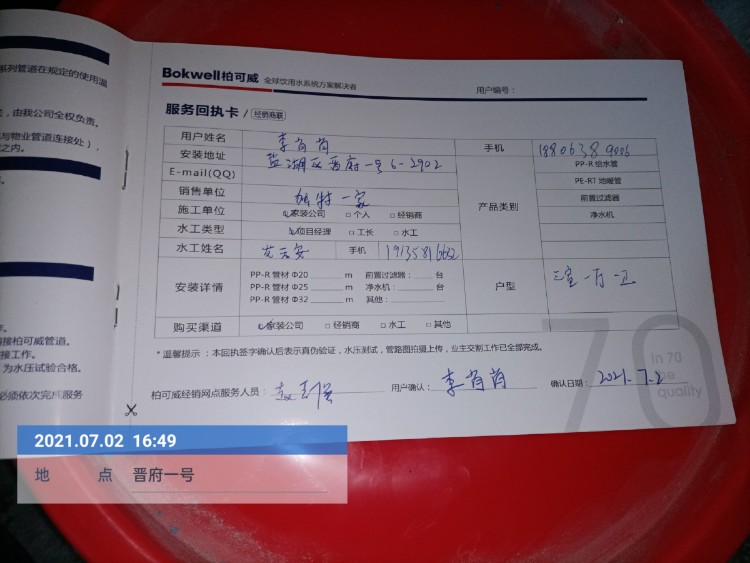 系列管道在规定的使用温
,由我公司全权负责。
与物业管道连接处),
之内。
接柏可威管道。
接工作。
为水压试验合格。
必须依次完成服务
Bokwell柏可威 全球饮用水系统方案解决者
用户编号:
服务回执卡 / 经销商联
用户姓名 李肖肖 手机
安装地址 盐湖区晋府一号6-2902
E-mail(QQ)
销售单位 一家
施工单位 ☑家装公司 □个人 □经销商
水工类型 ☑项目经理 □工长 □水工
水工姓名 手机
产品类别
PP-R 给水管
PE-RT 地暖管
前置过滤器
净水机
安装详情
PP-R 管材 Φ20 m 前置过滤器: 台
PP-R 管材 Φ25 m 净水机: 台
PP-R 管材 Φ32 m 其他:
户型 三室一厅一卫
购买渠道 ☑家装公司 □经销商 □水工 □其他
*温馨提示:本回执签字确认后表示真伪验证,水压测试,管路图拍摄上传,业主交割工作已全部完成。
柏可威经销网点服务人员:
用户确认: 李肖肖
确认日期: 2021.7.2
70
In 70
quality
2021.07.02 16:49
地 点 晋府一号